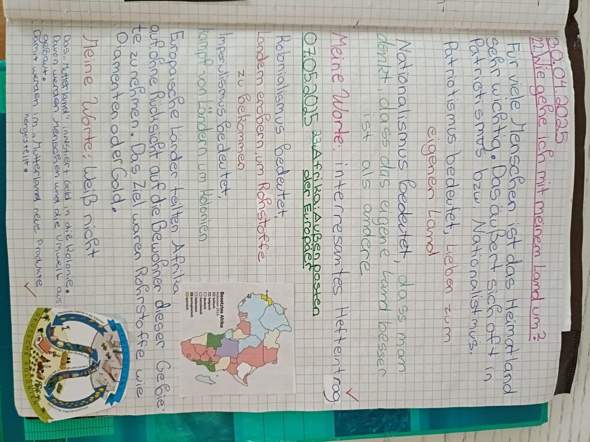 30.04.2025
22. Wie gehe ich mit meinem Land um?
Für viele Menschen ist das Heimatland
sehr wichtig. Das äußert sich oft in
Patriotismus bzw Nationalistmus.
Patriotismus bedeutet, Lieber zum
eigenen Land
Nationalismus bedeutet, dass man
denkt dass das eigene Land besser
ist als andere
Meine Worte: interresantes Hefteintrag
07.05.2025 23. Afrika: Außenposten
der Europäer
Kolonialismus bedeutet,
Ländern erobern um Rohstoffe
zu bekommen
Imperialismus bedeutet,
Kampf von Ländern um Kolonien
Europäische Länder teilten Afrika
auf ohne Rücksicht auf die Bewohner dieser Gebie-
te zu nehmen. Das Ziel waren Rohrstoffe wie
Diamenten oder Gold.
Meine Worte: Weiß nicht
Das "Mutterland" investiert Geld in die Kolonie.
Davon werden Menschen und die Umwelt aus-
gebeutet.
Damit werden im "Mutterland" neue Produkte
hergestellt.